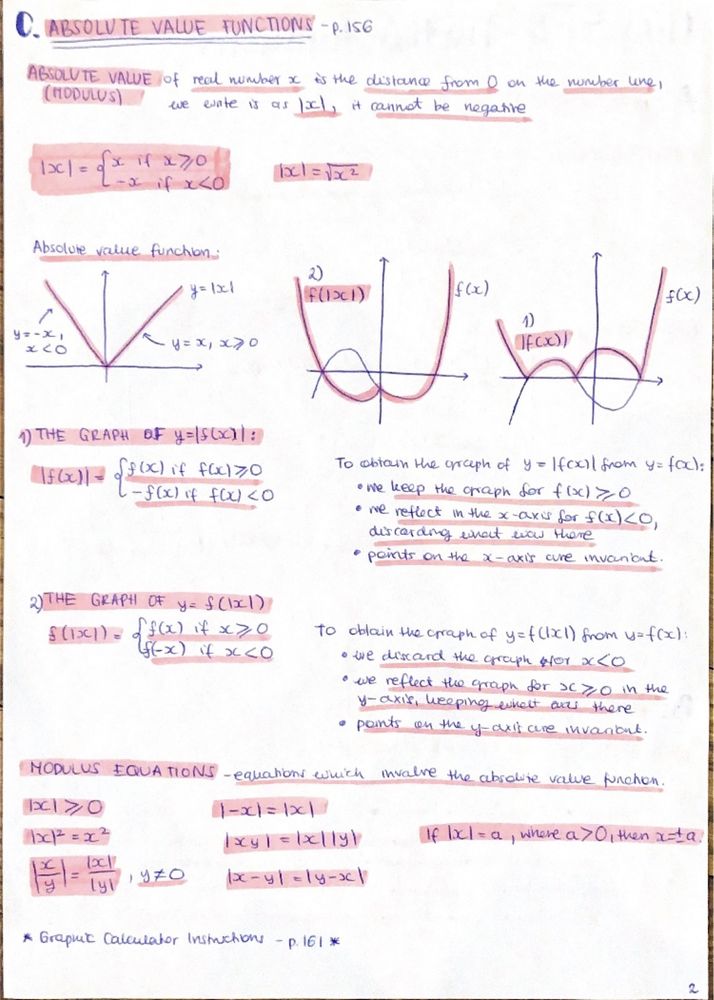 C. ABSOLUTE VALUE FUNCTIONS - p.156
ABSOLUTE VALUE of real number x is the distance from 0 on the number line,
(MODULUS) we write is as |x|, it cannot be negative
|x| = { x if x ⩾ 0
-x if x < 0
|x| = √x²
Absolute value function:
y = |x|
y = -x,
x < 0
y = x, x ⩾ 0
2)
f(|x|)
f(x)
1)
|f(x)|
f(x)
1) THE GRAPH OF y = |f(x)| :
|f(x)| = { f(x) if f(x) ⩾ 0
-f(x) if f(x) < 0
To obtain the graph of y = |f(x)| from y = f(x):
• we keep the graph for f(x) ⩾ 0
• we reflect in the x-axis for f(x) < 0,
discarding what was there
• points on the x-axis are invariant.
2) THE GRAPH OF y = f(|x|)
f(|x|) = { f(x) if x ⩾ 0
f(-x) if x < 0
To obtain the graph of y = f(|x|) from y = f(x):
• we discard the graph for x < 0
• we reflect the graph for x ⩾ 0 in the
y-axis, keeping what was there
• points on the y-axis are invariant.
MODULUS EQUATIONS - equations which involve the absolute value function.
|x| ⩾ 0
|-x| = |x|
|x|² = x²
|xy| = |x| |y|
If |x| = a, where a > 0, then x = ± a.
|x/y| = |x|/|y| , y ≠ 0
|x-y| = |y-x|
* Graphic Calculator Instructions - p.161 *
2